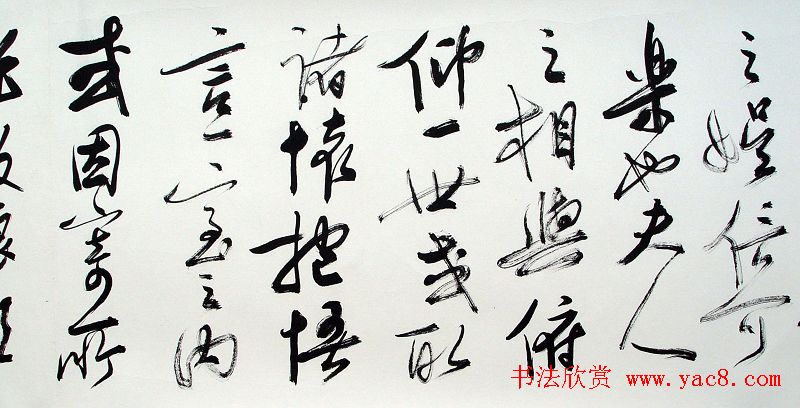 之娱信可
樂也夫人
之相與俯
仰一世或取
諸懷抱悟
言一室之内
或因寄所
托放浪
书法欣赏 www.yac8.com